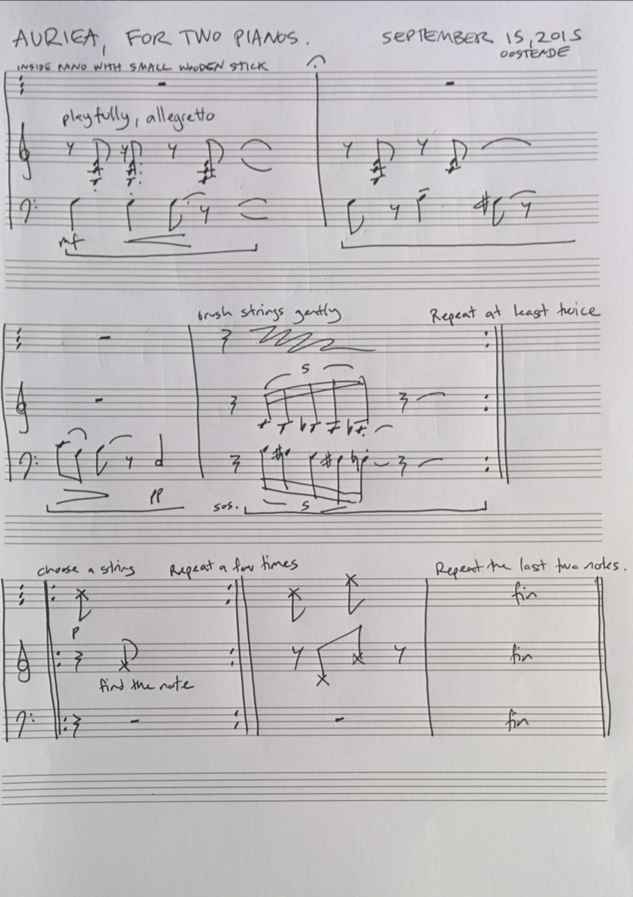 AURIEA, FOR TWO PIANOS. SEPTEMBER 15, 2015
OOSTENDE
INSIDE PIANO WITH SMALL WOODEN STICK
playfully, allegretto
mf
brush strings gently Repeat at least twice
5
pp sos. 5
choose a string Repeat a few times Repeat the last two notes.
fin
p
find the note
fin
fin